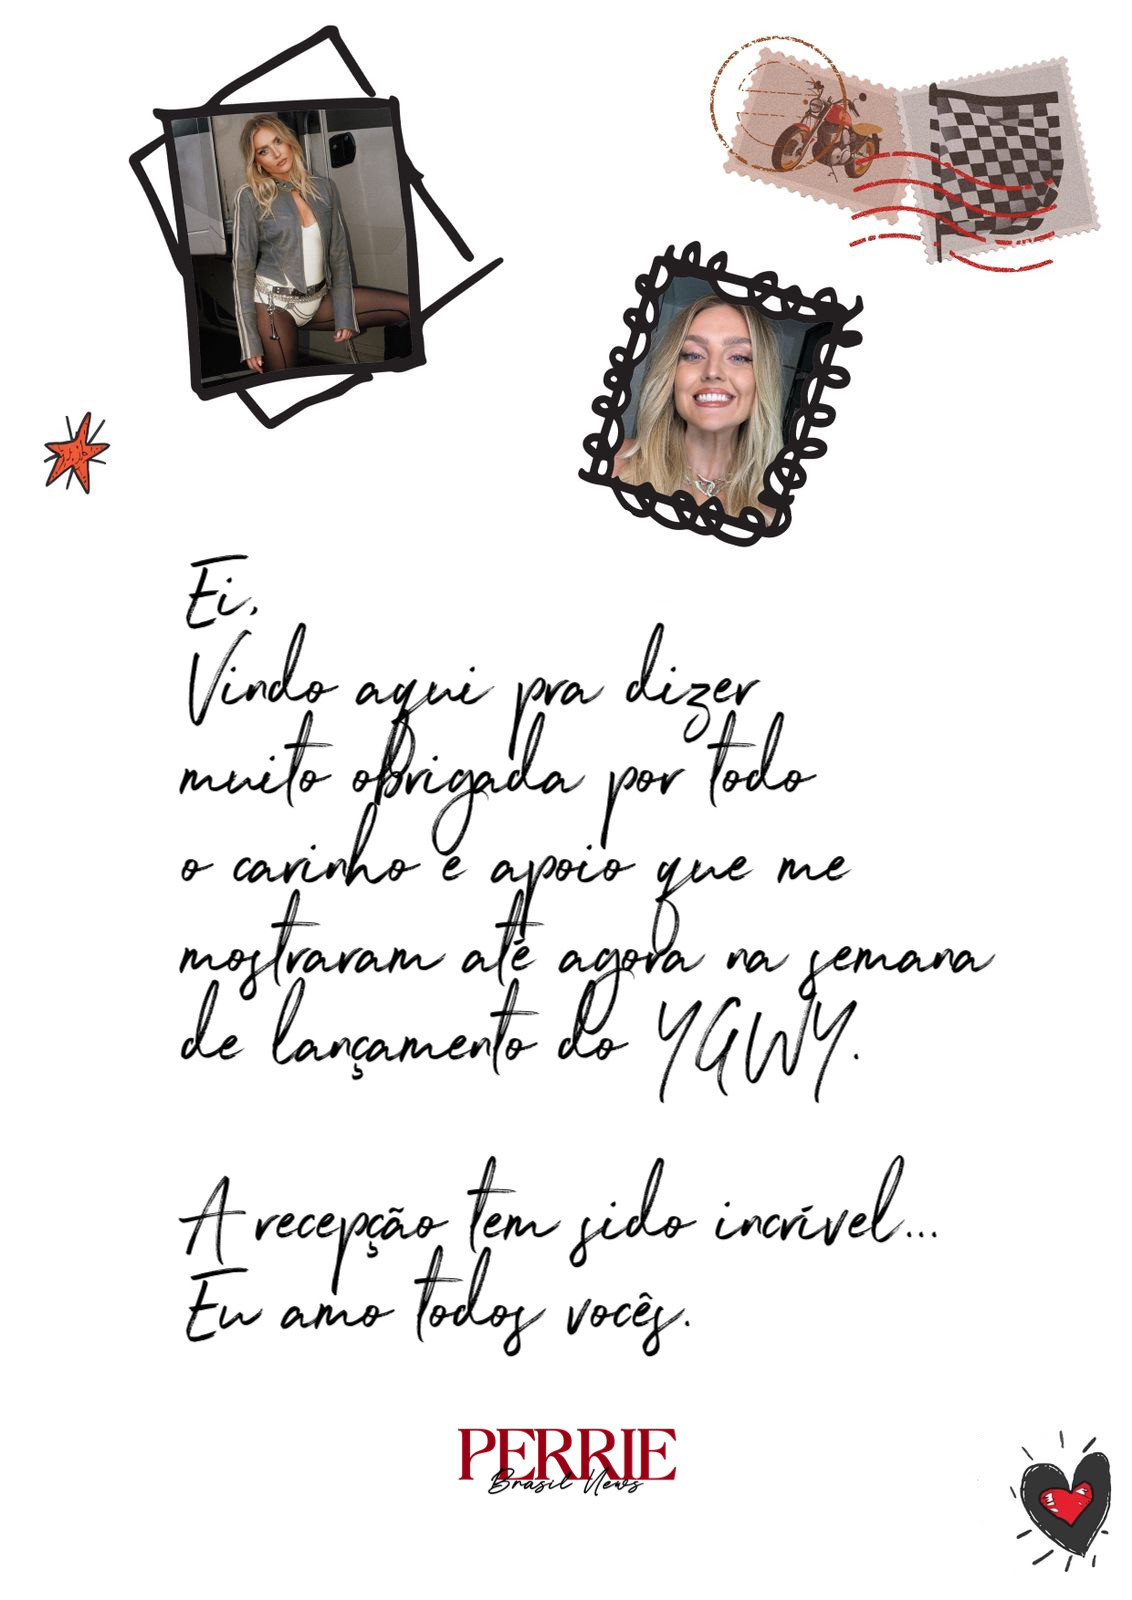 Ei,
Vindo aqui pra dizer
muito obrigada por todo
o carinho e apoio que me
mostraram até agora na semana
de lançamento do YGWY.
A recepção tem sido incrível...
Eu amo todos vocês.
PERRIE
Brasil News